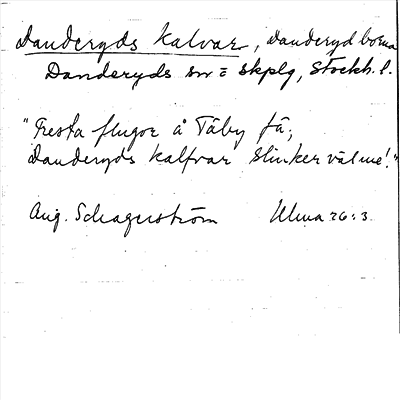 Danderyds kalvar, Danderydborna
Danderyds sn = skplg, Stockh. l.
"Fresta flugor å Täby fä,
Danderyds kalfvar slinker väl mé!"
Aug. Schagerström Ulma 26:3